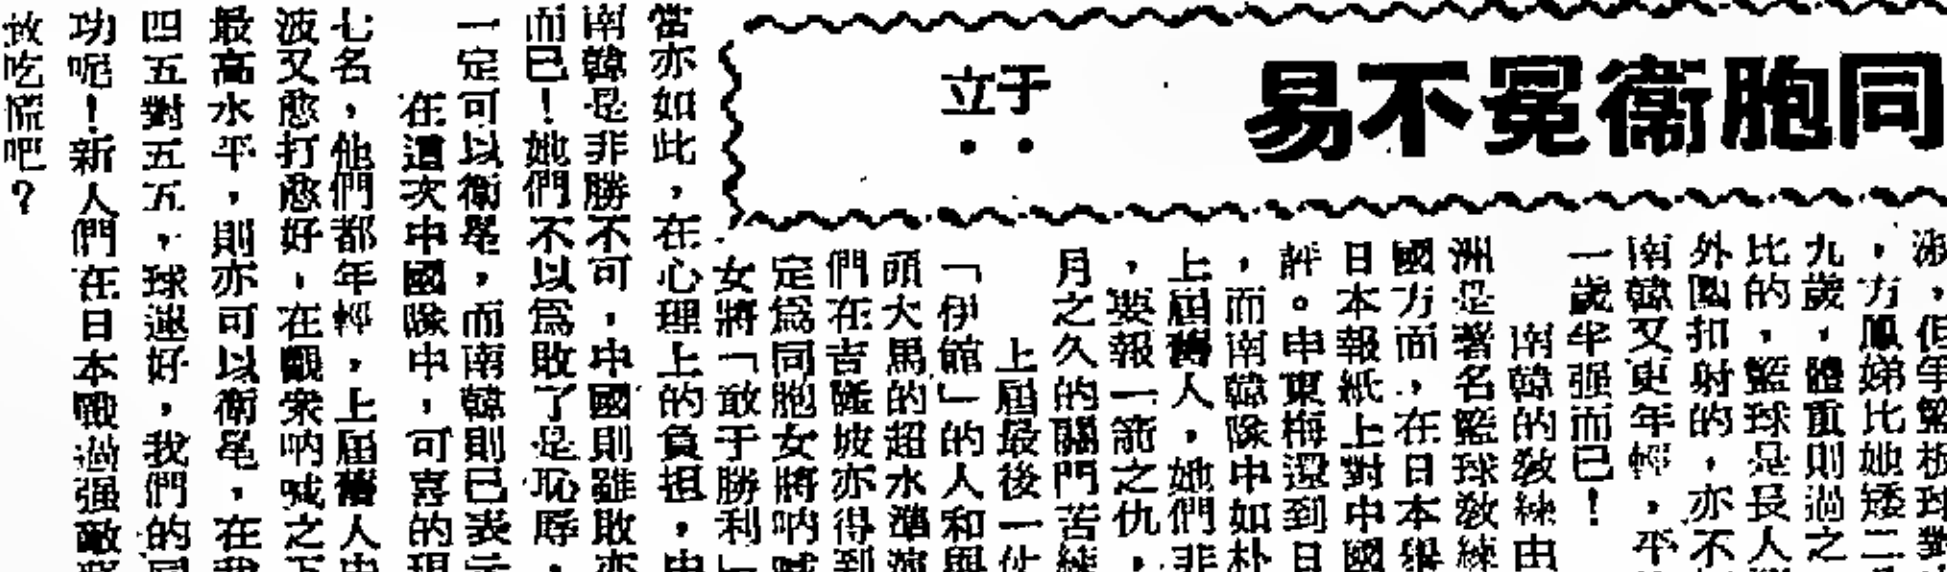 同胞衞冕不易
于立
淑，但爭籃板球對
，方鳳娣比她矮二
九歲，體重則過之
比的，籃球是長人
外圍扣射的，亦不
南韓又更年輕，平
一歲半强而已！
南韓的敎練由
洲是著名籃球敎練
國方面，在日本舉
日本報紙上對中國
評。申東梅還到日
，而南韓隊中如朴
上屆舊人，她們非
，要報一箭之仇，
月之久的關門苦練
上屆最後一仗
「伊館」的人和與
頭大馬的超水準演
們在吉隆坡亦得到
定爲同胞女將吶喊
女將「敢于勝利」
當亦如此，在心理上的負担，中
南韓是非勝不可，中國則雖敗亦
而已！她們不以爲敗了是恥辱，
一定可以衞冕，而南韓則已表示
在這次中國隊中，可喜的現
七名，他們都年輕，上屆舊人中
波又愈打愈好，在觀衆吶喊之下
最高水平，則亦可以衞冕，在我
四五對五五，球運好，我們的同
功呢！新人們在日本戰過强敵
放吃慌吧？